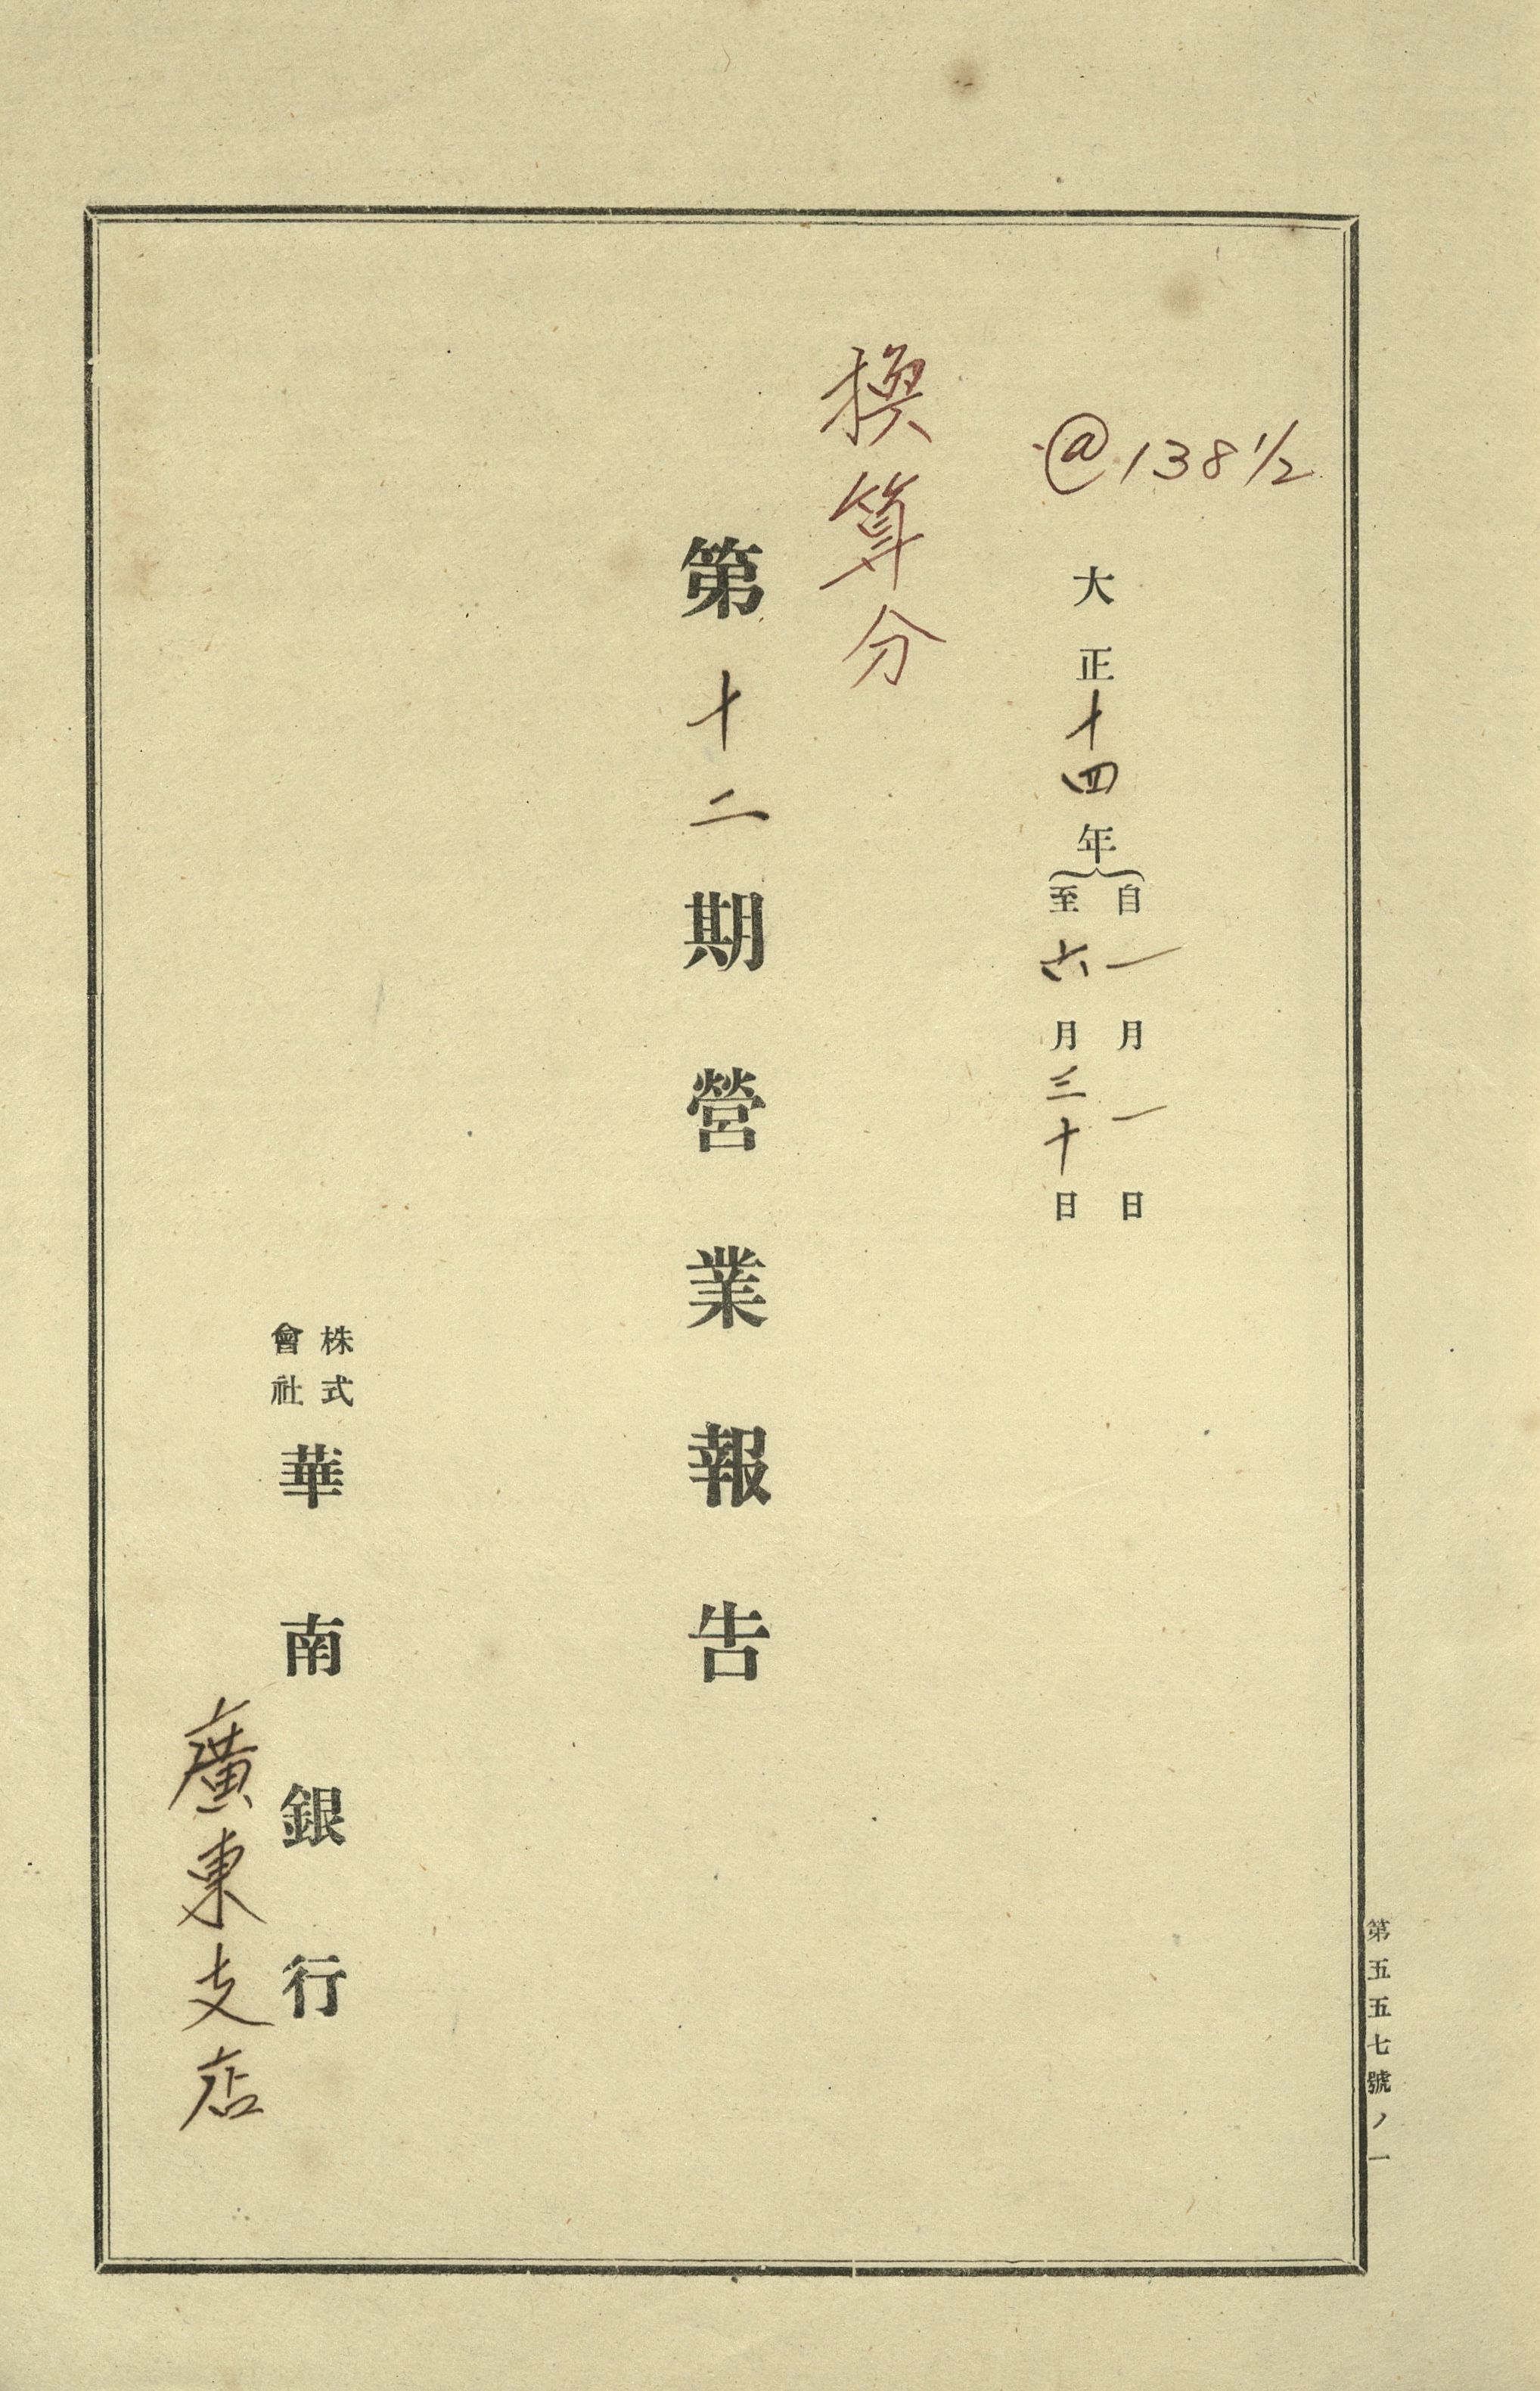 @138 1/2
大正十四年
自一月一日
至六月三十日
換算分
第十二期營業報告
株式
會社
華南銀行
廣東支店
第五五七號ノ一